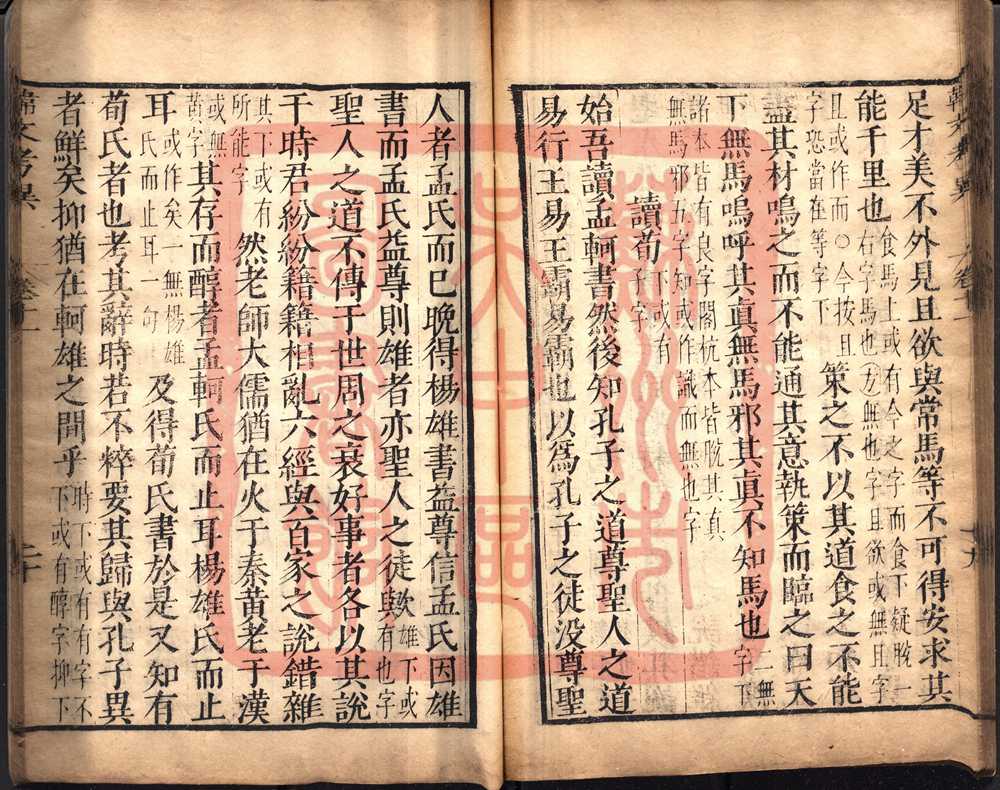 足才美不外見且欲與常馬等不可得安求其
能千里也食馬上或有今之字而食下疑脫一右字馬也方無也字且欲或無且字
且或作而○今按且字恐當在等字下策之不以其道食之不能
盡其材鳴之而不能通其意執策而臨之曰天
下無馬嗚呼其真無馬邪其真不知馬也二無字下
諸本皆有良字閣杭本皆脫其真無馬邪五字知或作識而無也字
讀荀子下或有字
始吾讀孟軻書然後知孔子之道尊聖人之道
易行王易王霸易霸也以爲孔子之徒没尊聖
韓文考異 卷十一 十九
人者孟氏而已晚得楊雄書益尊信孟氏因雄
書而孟氏益尊則雄者亦聖人之徒歟雄下或有也字
聖人之道不傳于世周之衰好事者各以其說
干時君紛紛籍籍相亂六經與百家之說錯雜
其下或有所能字然老師大儒猶在火于秦黃老于漢
或無黃字其存而醇者孟軻氏而止耳楊雄氏而止
耳或作矣一無楊雄氏而止耳一句及得荀氏書於是又知有
荀氏者也考其辭時若不粹要其歸與孔子異
者鮮矣抑猶在軻雄之間乎時下或有有字不下或有醇字抑下
韓文考異 卷十一 二十